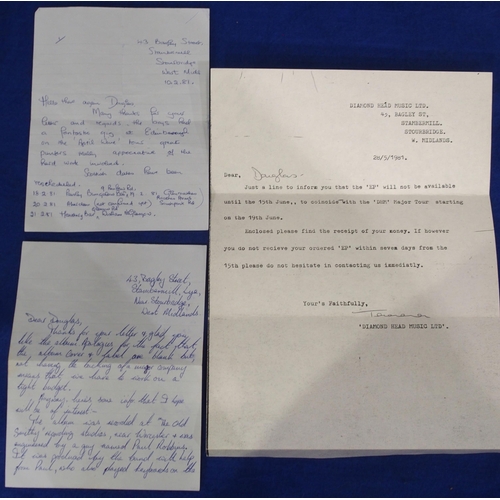 43 Bagley Street
Stambermill
Stourbridge
West Mids
10.3.81.
Hello there again Douglas
Many thanks for your
letter and regards, the band had
a fantastic gig at Edinburgh
on the April Wine tour great
really appreciative of the
hard work involved.
dates have been
rescheduled.
43, Bagley Street,
Stambermill, Lye,
Near Stourbridge,
West Midlands
Dear Douglas,
Thanks for your letter & glad you
like the album. Apologies for the fact that
the album cover & label are blank but
not having the backing of a major company
means that we have to work on a
tight budget.
Anyway, here's some info that I hope
will be of interest -
The album was recorded at "The Old
Smithy" recording studios, near Worcester & was
engineered by a guy named Paul Robbins.
It was produced by the band with help
from Paul, who also played keyboards on the
DIAMOND HEAD MUSIC LTD.
43, BAGLEY ST,
STAMBERMILL,
STOURBRIDGE.
W. MIDLANDS.
28/5/1981.
Dear, Douglas -
Just a line to inform you that the 'EP' will not be available
until the 15th June,, to coincide with the 'DHM' Major Tour starting
on the 19th June.
Enclosed please find the receipt of your money. If however
you do not recieve your ordered 'EP' within seven days from the
15th please do not hesitate in contacting us immediatly.
Your's Faithfully,
'DIAMOND HEAD MUSIC LTD'.